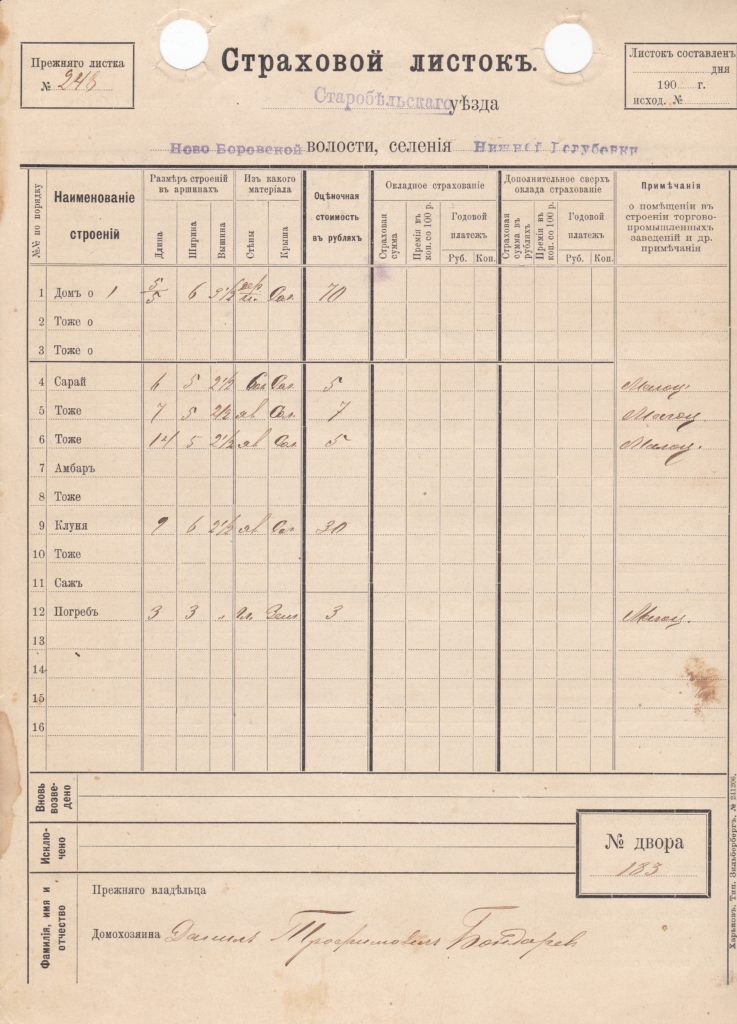 Прежняго листка
№ 248
Страховой листокъ.
Листокъ составленъ
дня
190 г.
исход. №
Старобѣльскаго уѣзда
Ново Боровской волости, селенія Нижней Голубовки
№№ по порядку
Наименованіе строеній
Размѣръ строеній въ аршинахъ
Длина
Ширина
Вышина
Изъ какого матеріала
Стѣны
Крыша
Оцѣночная стоимость въ рубляхъ
Окладное страхованіе
Страховая сумма
Премія въ коп. со 100 р.
Годовой платежъ
Руб. Коп.
Дополнительное сверхъ оклада страхованіе
Страховая сумма въ рубляхъ
Премія въ коп. со 100 р.
Годовой платежъ
Руб. Коп.
Примѣчанія
о помѣщеніи въ строеніи торгово-промышленныхъ заведеній и др. примѣчанія
1 Домъ о 1 5/5 6 3 1/2 Сол. 70
2 Тоже о
3 Тоже о
4 Сарай 6 5 2 1/2 Сол. Сол. 5
5 Тоже 7 5 2 1/2 Сол. 7
6 Тоже 14 5 2 1/2 Сол. 5
7 Амбаръ
8 Тоже
9 Клуня 9 6 2 1/2 Сол. 30
10 Тоже
11 Сажъ
12 Погребъ 3 3 " Зем. 3
13
14
15
16
Вновь возведено
Исключено
№ двора
183
Фамилія, имя и отчество
Прежняго владѣльца
Домохозяина Данилъ Трофимовичъ Бондарев
Харьковъ, Тип. Зильбербергъ, № 241206.